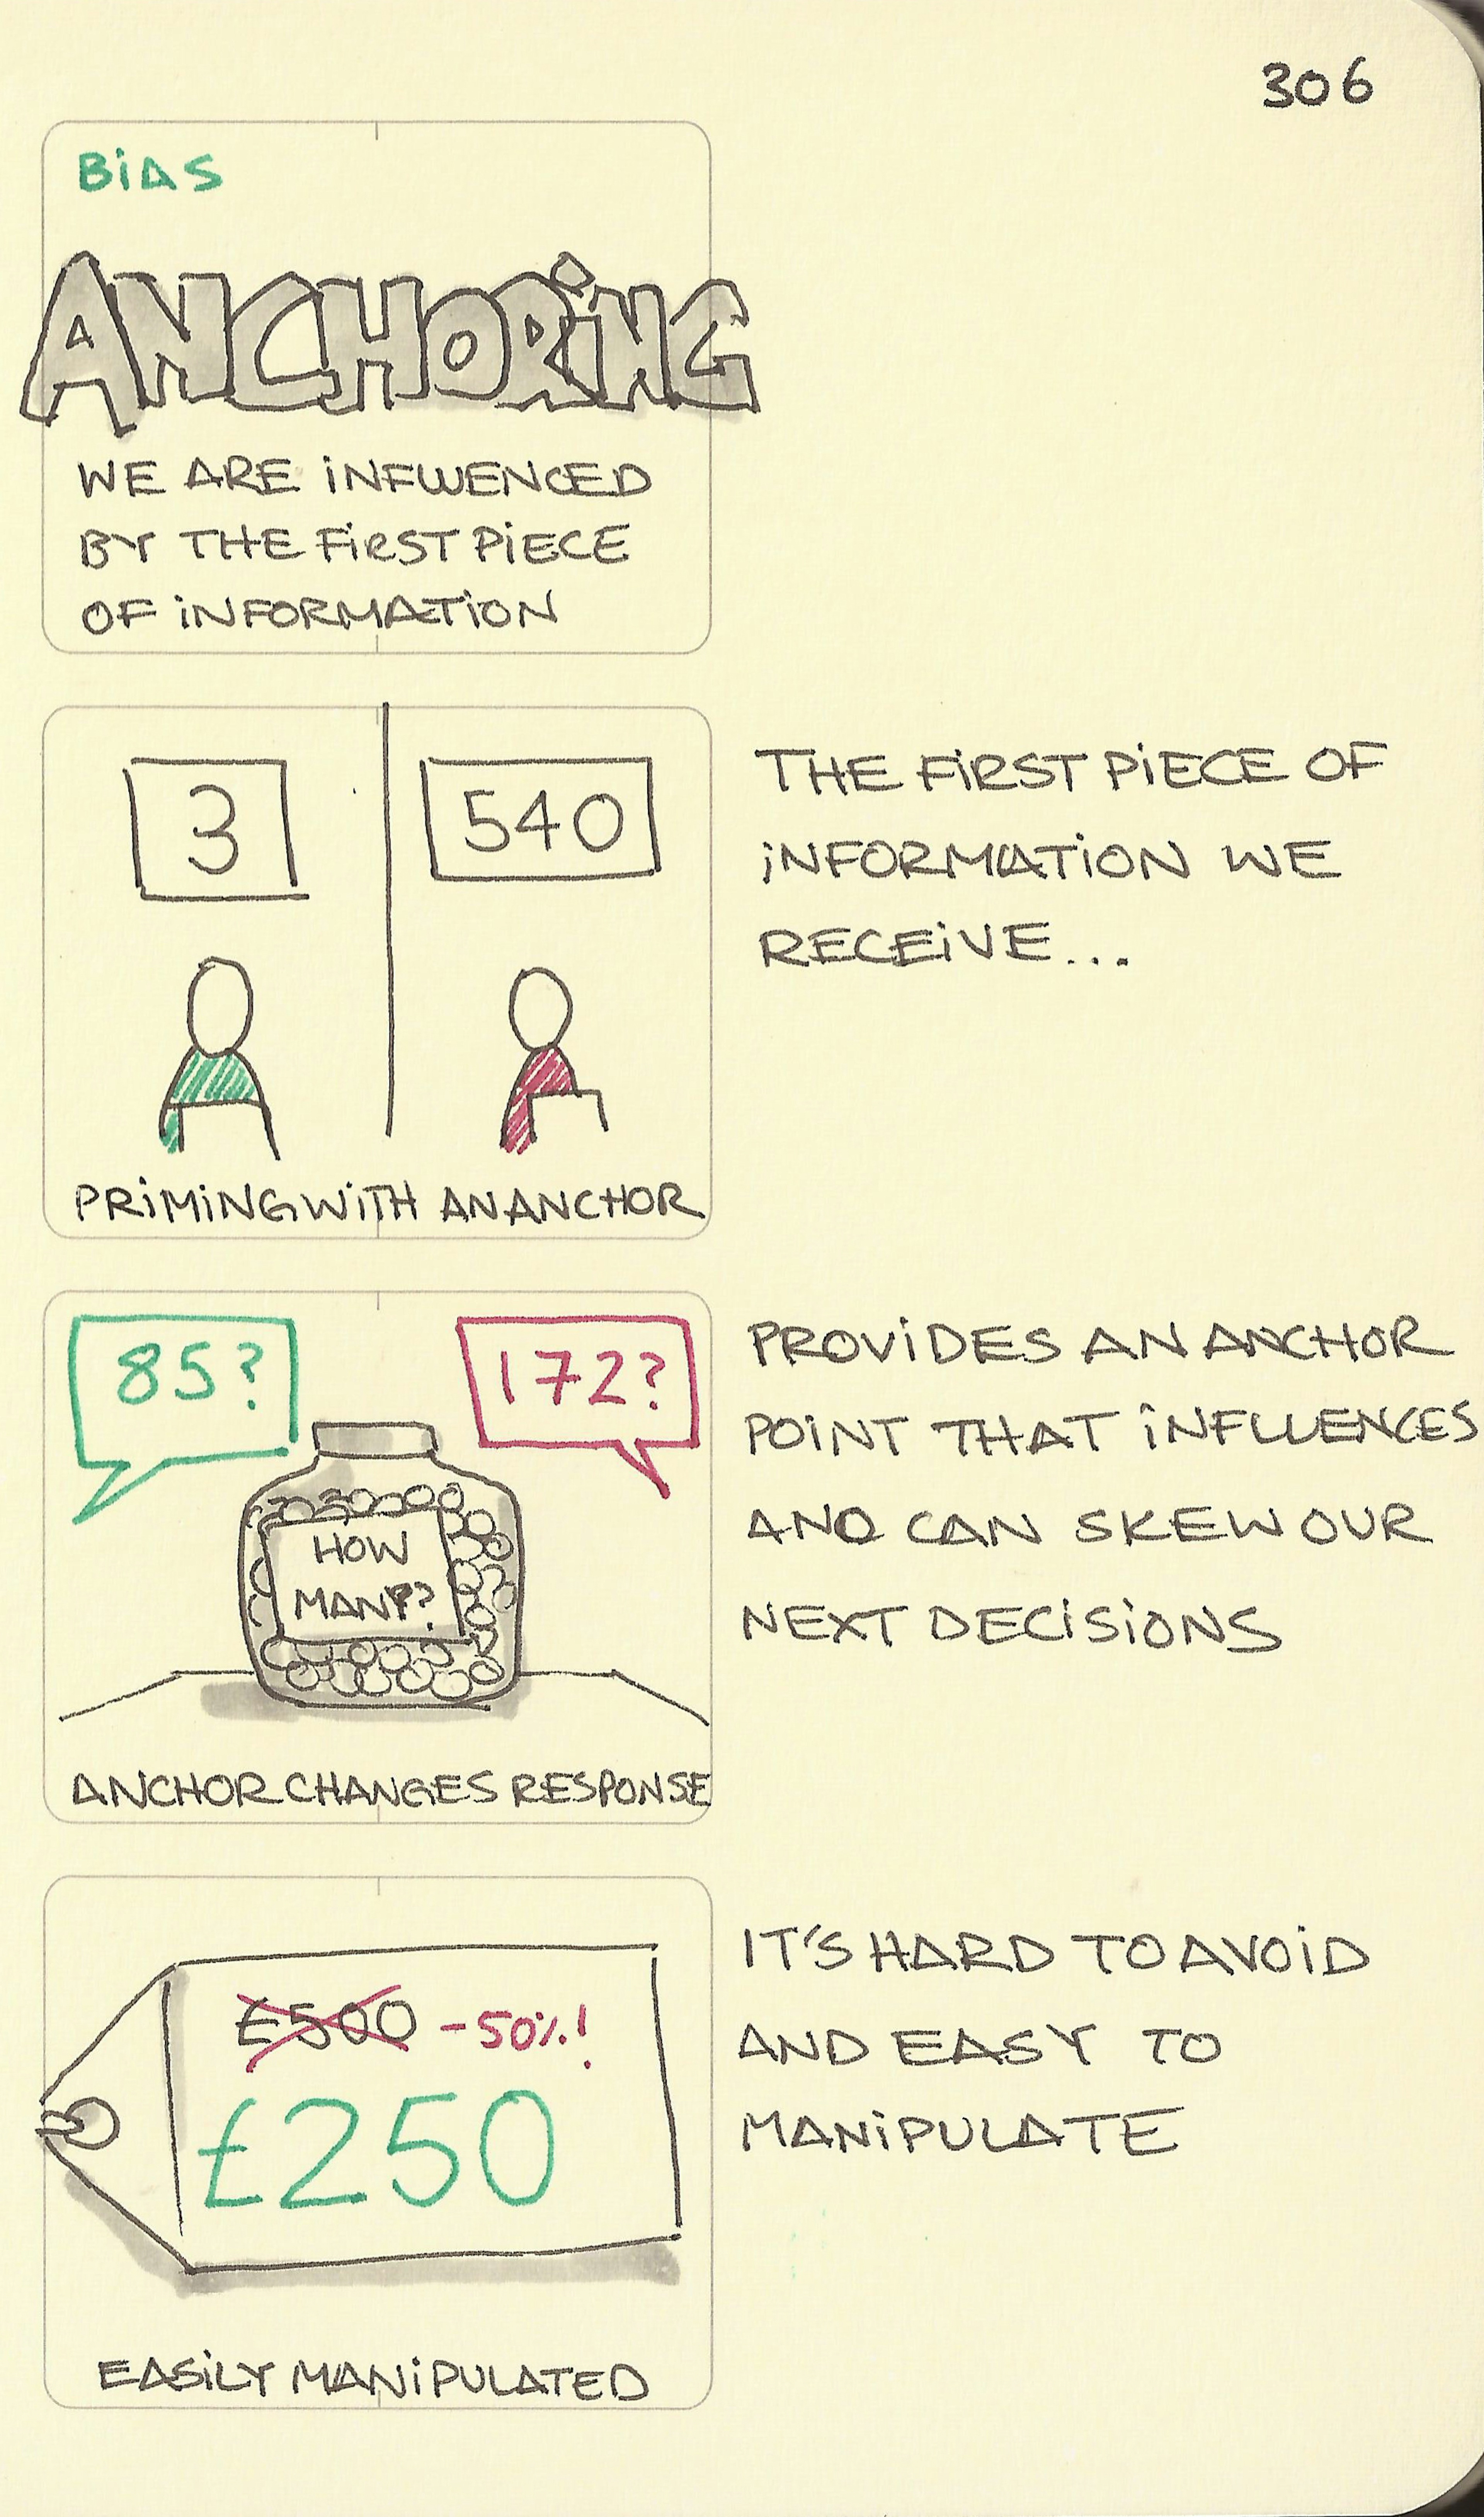 306
BIAS
ANCHORING
WE ARE INFLUENCED
BY THE FIRST PIECE
OF INFORMATION
3
540
PRIMING WITH AN ANCHOR
THE FIRST PIECE OF
INFORMATION WE
RECEIVE...
85?
172?
HOW
MANY?
ANCHOR CHANGES RESPONSE
PROVIDES AN ANCHOR
POINT THAT INFLUENCES
AND CAN SKEW OUR
NEXT DECISIONS
£500 -50%!
£250
EASILY MANIPULATED
IT'S HARD TO AVOID
AND EASY TO
MANIPULATE